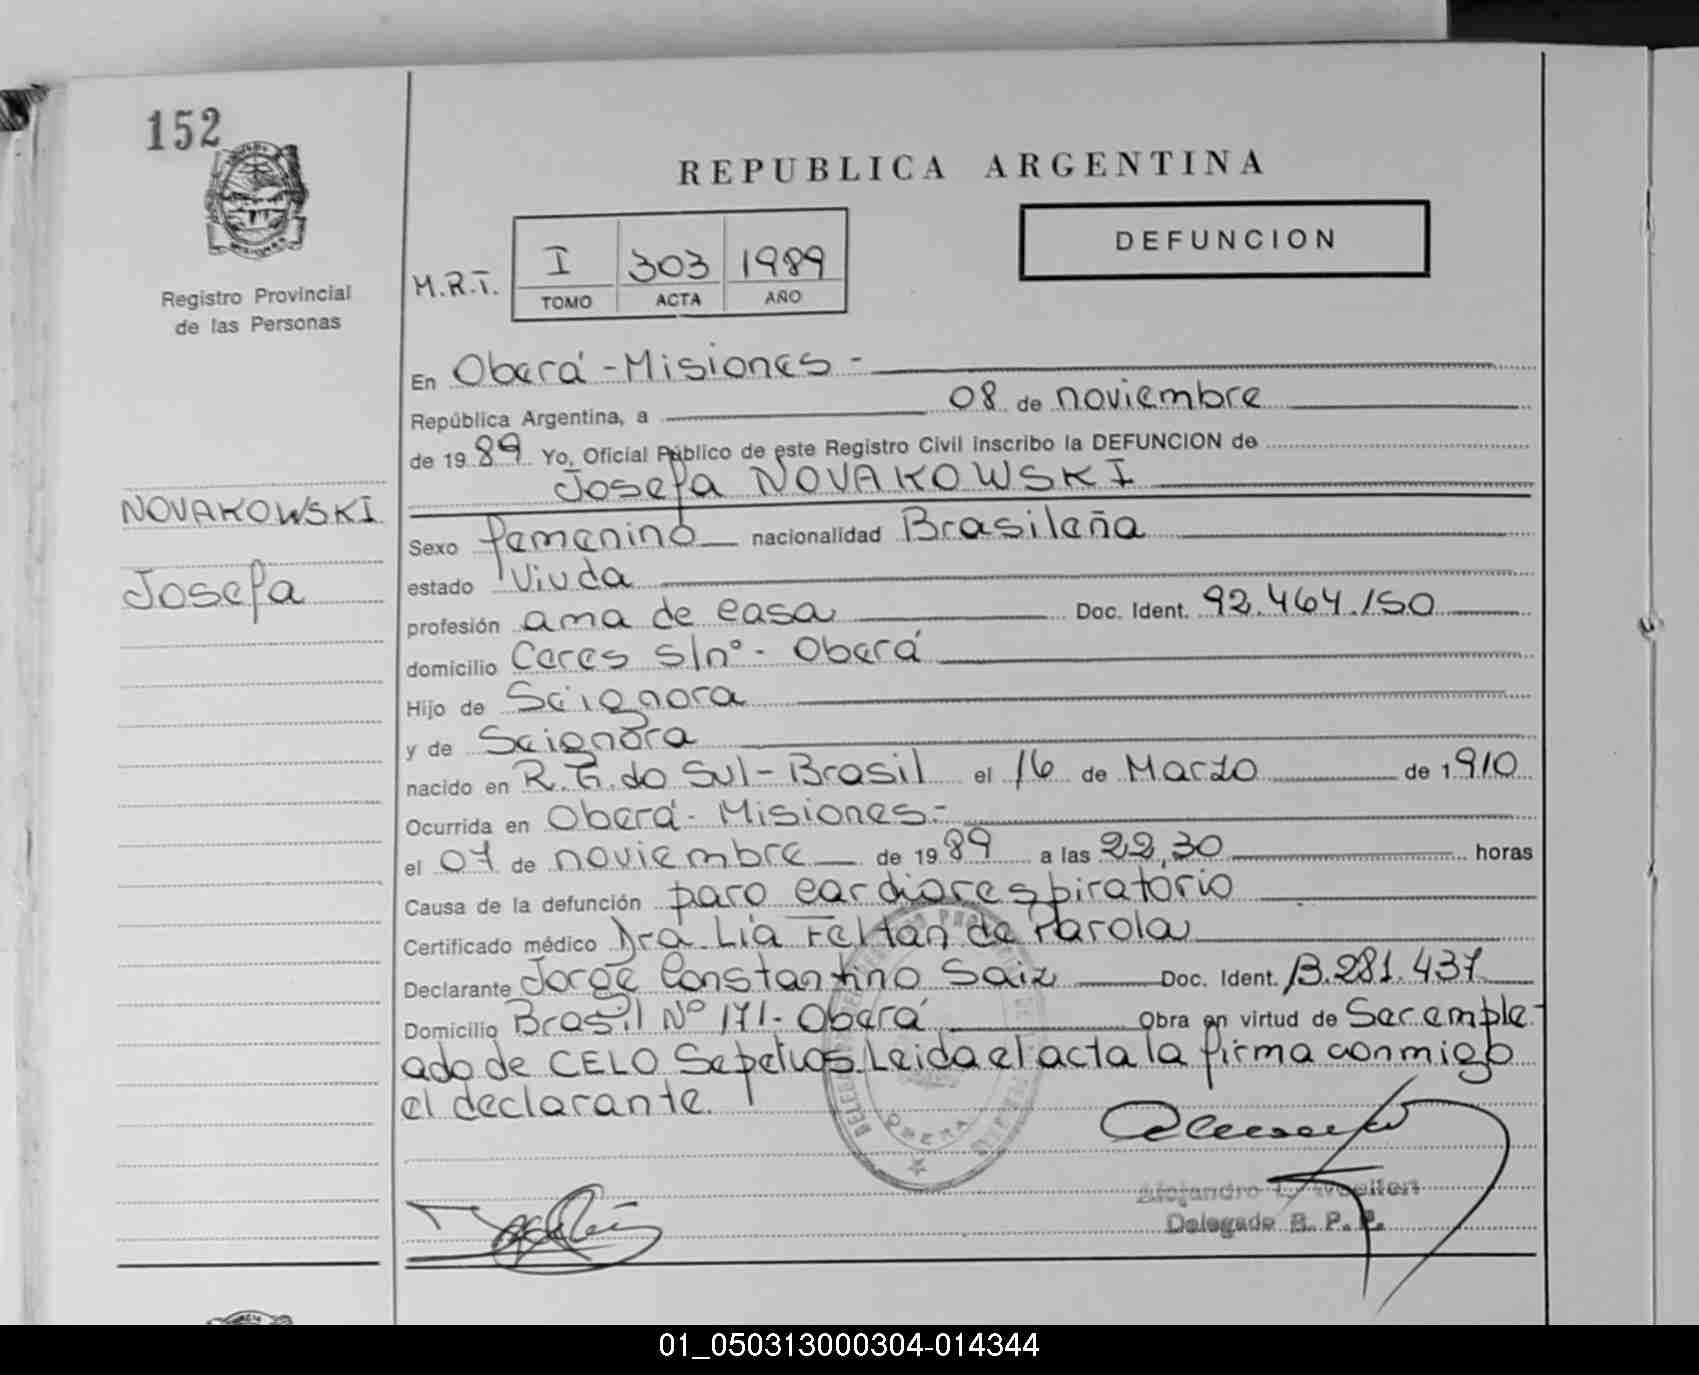 152
REPUBLICA ARGENTINA
DEFUNCION
M.R.T.
I 303 1989
TOMO ACTA AÑO
Registro Provincial
de las Personas
NOVAKOWSKI
Josefa
En Oberá - Misiones -
República Argentina, a 08 de noviembre
de 1989 Yo, Oficial Público de este Registro Civil inscribo la DEFUNCION de
Josefa NOVAKOWSKI
Sexo femenino nacionalidad Brasileña
estado Viuda
profesión ama de casa Doc. Ident. 92.464.150
domicilio Ceres s/nº - Oberá
Hijo de Se ignora
y de Se ignora
nacido en R. G. do Sul - Brasil el 16 de Marzo de 1910
Ocurrida en Oberá - Misiones -
el 07 de noviembre de 1989 a las 22,30 horas
Causa de la defunción paro cardiorespiratorio
Certificado médico Dra. Lia Feltan de Parola
Declarante Jorge Constantino Saiz Doc. Ident. 13.281.437
Domicilio Brasil Nº 171 - Oberá Obra en virtud de Ser emple-
ado de CELO Sepelios. Leida el acta la firma conmigo
el declarante.
OBERA
Alejandro
Delegado R. P. P.
01_050313000304-014344